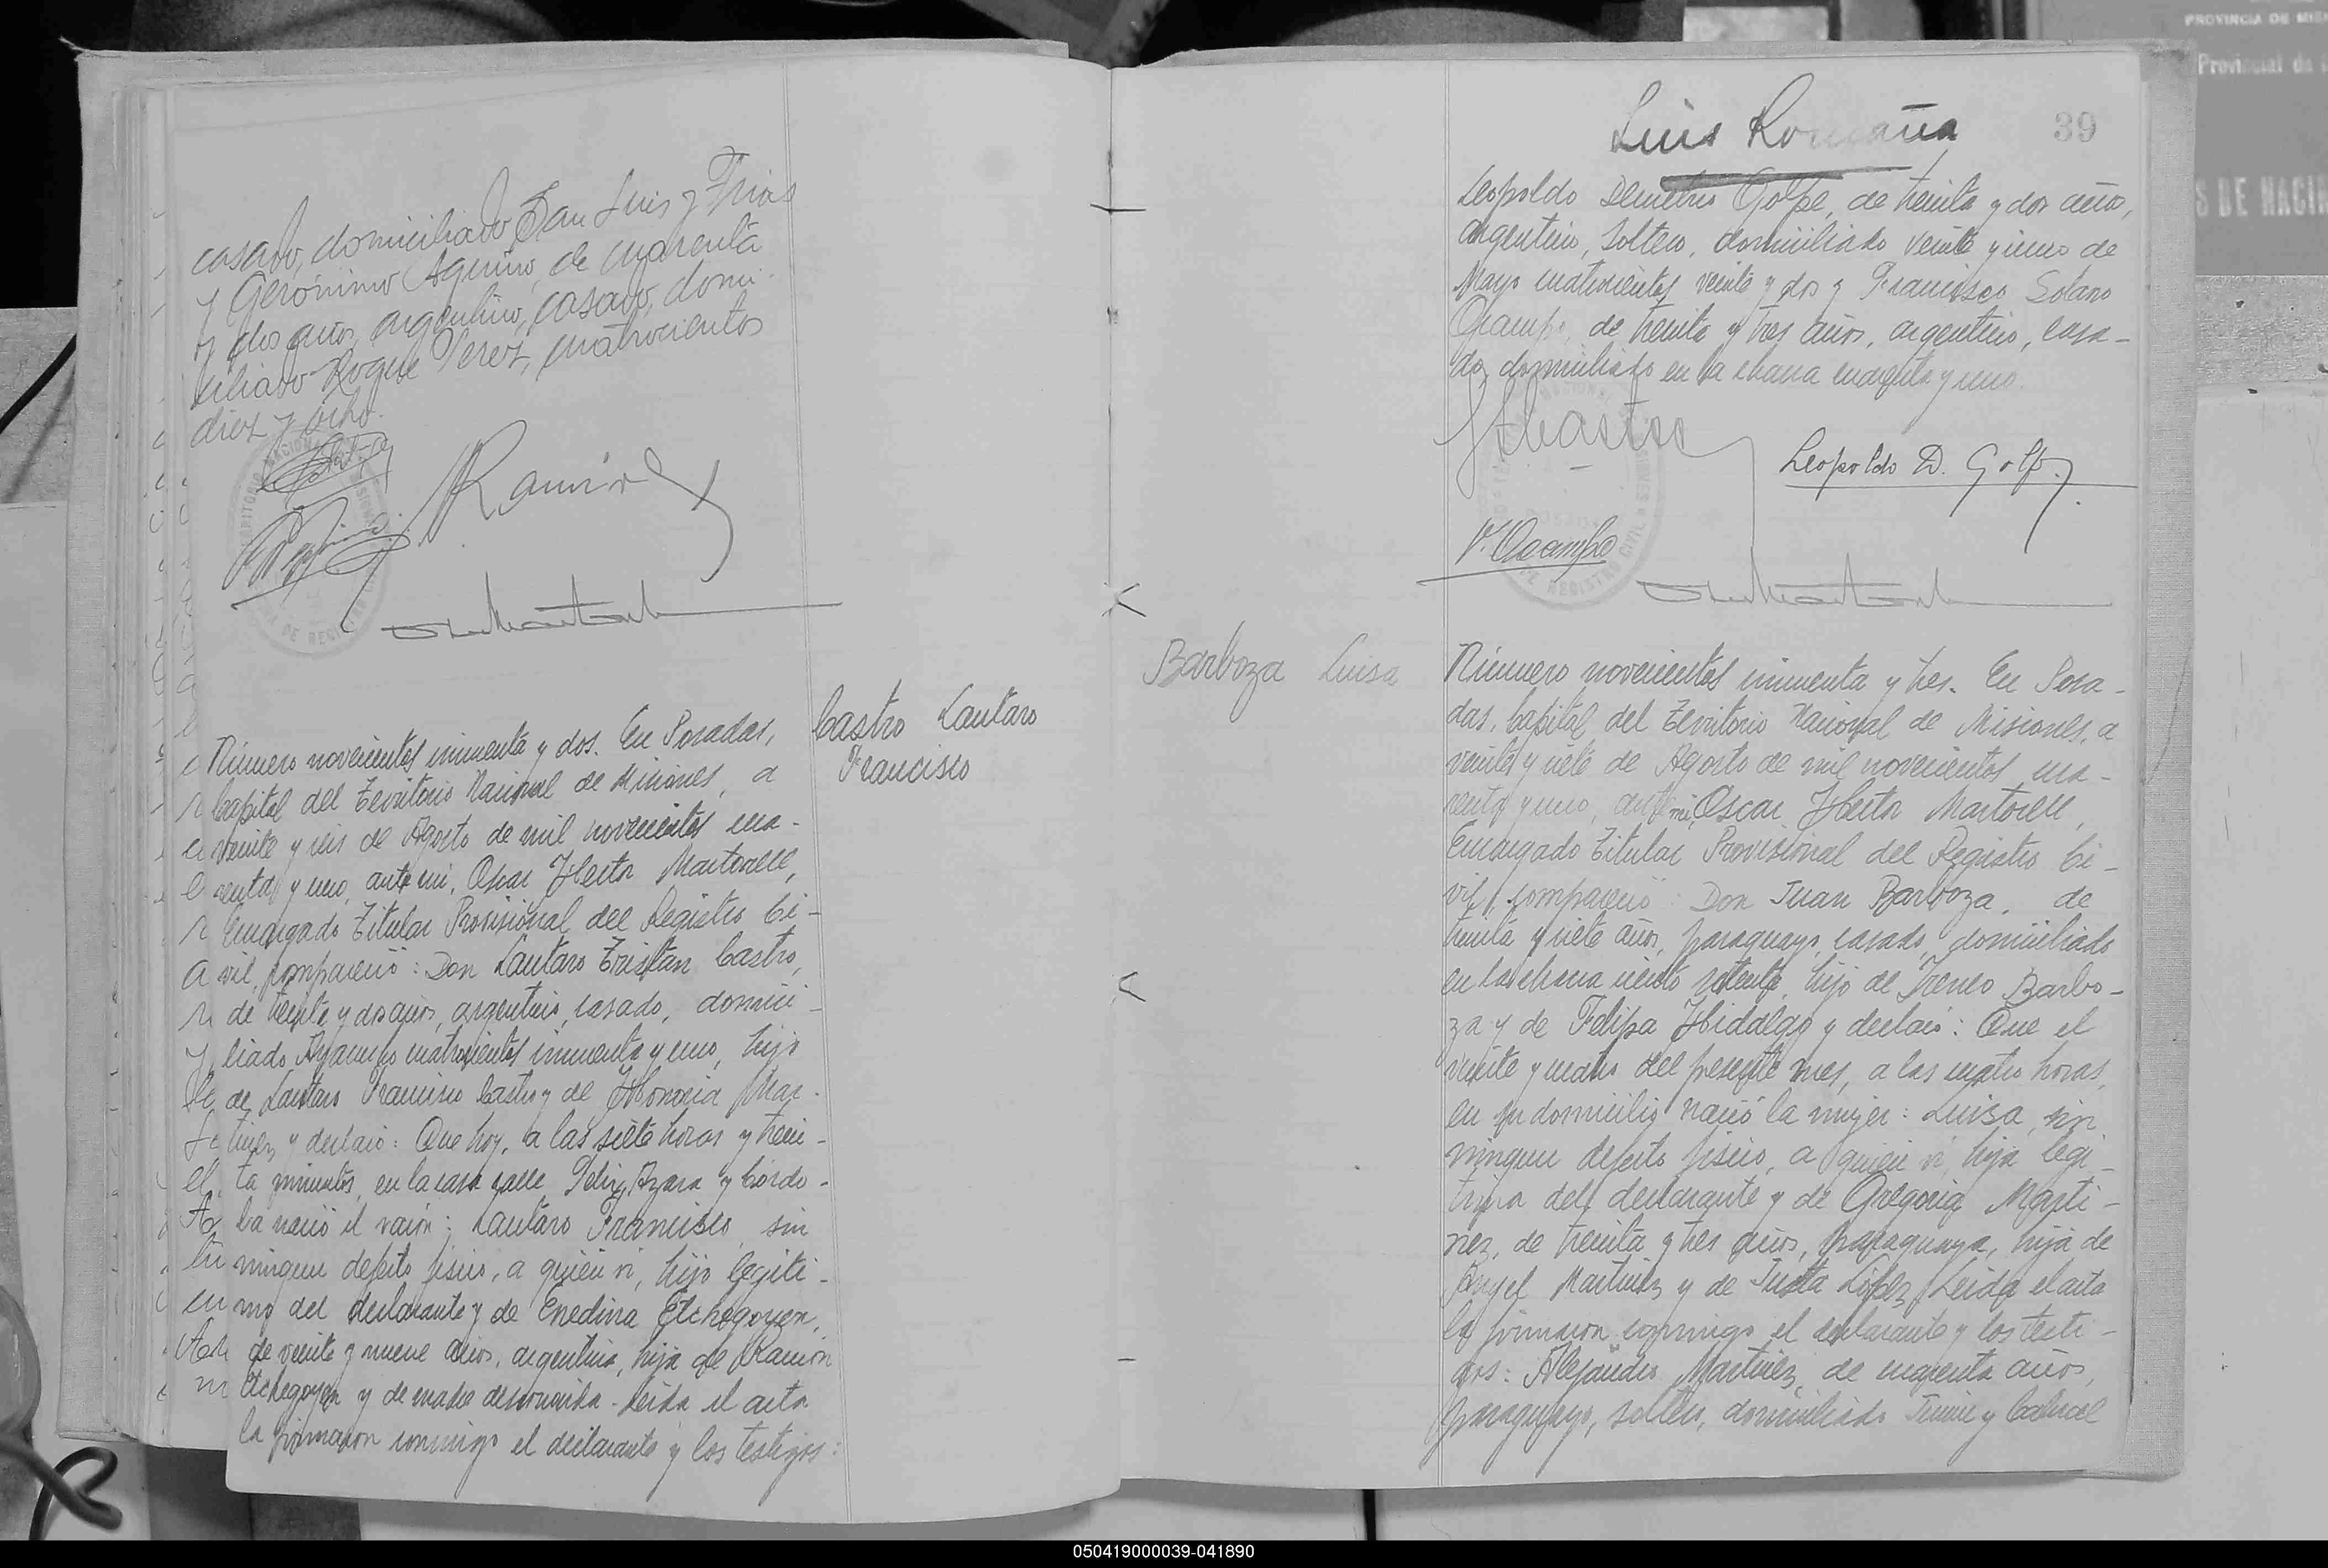 casado, domiciliado San Luis y Frias
y Gerónimo Aquino, de cuarenta
y dos años, argentino, casado, domi-
ciliado Roque Perez, cuatrocientos
diez y ocho.
Ramirez
Castro Lautaro
Francisco
Número novecientos cincuenta y dos. En Posadas,
Capital del Territorio Nacional de Misiones, a
veinte y seis de Agosto de mil novecientos cua-
renta y uno, ante mi, Oscar Hector Martorell,
Encargado Titular Provisional del Registro Ci-
vil, compareció: Don Lautaro Tristán Castro,
de treinta y dos años, argentino, casado, domici-
liado Ayacucho cuatrocientos cincuenta y uno, hijo
de Lautaro Francisco Castro y de Honoria Mar-
tinez y declaró: Que hoy, a las siete horas y trein-
ta minutos, en la casa calle Felix Azara y Córdo-
ba nació el varón: Lautaro Francisco, sin
ningun defecto fisico, a quién vi, hijo legiti-
mo del declarante y de Enedina Etchegoyen,
de veinte y nueve años, argentina, hija de Ramón
Etchegoyen y de madre desconocida. Leida el acta
la firmaron conmigo el declarante y los testigos:
Luis Romaña
39
Leopoldo Demetrio Golpe, de treinta y dos años,
argentino, soltero, domiciliado veinte y uno de
Mayo cuatrocientos veinte y dos y Francisco Solano
Ocampo, de treinta y tres años, argentino, casa-
do, domiciliado en la chacra cuarenta y uno.
LTCastro
Leopoldo D. Golpe
F. Ocampo
Barboza Luisa
Número novecientos cincuenta y tres. En Posa-
das, Capital del Territorio Nacional de Misiones, a
veinte y siete de Agosto de mil novecientos cua-
renta y uno, ante mi, Oscar Hector Martorell,
Encargado Titular Provisional del Registro Ci-
vil, compareció: Don Juan Barboza, de
treinta y siete años, paraguayo, casado, domiciliado
en la chacra ciento setenta, hijo de Ireneo Barbo-
za y de Felipa Hidalgo y declaró: Que el
veinte y cuatro del presente mes, a las cuatro horas,
en su domicilio nació la mujer: Luisa, sin
ningun defecto fisico, a quién vi, hija legi-
tima del declarante y de Gregoria Marti-
nez, de treinta y tres años, paraguaya, hija de
Angel Martinez y de Justa López. Leida el acta
la firmaron conmigo el declarante y los testi-
gos: Alejandro Martinez, de cuarenta años,
paraguayo, soltero, domiciliado Junin y Cabral
PROVINCIA DE MISI
Provincial de
S DE NACIM
050419000039-041890